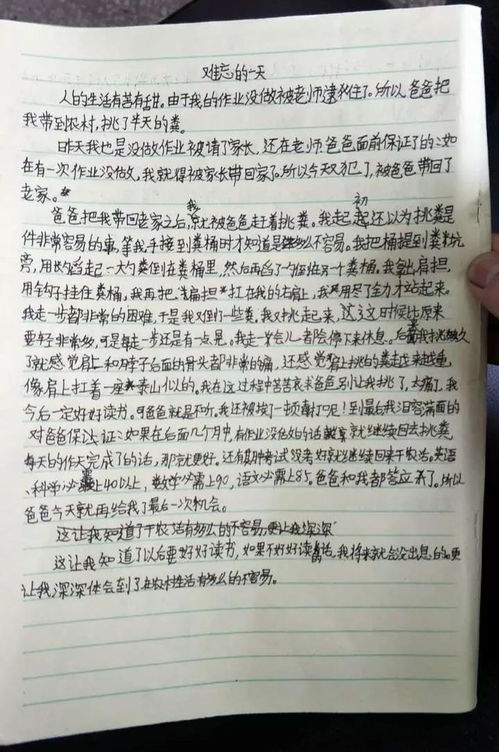 难忘的一天
人的生活有苦有甜。由于我的作业没做被老师逮住了。所以爸爸把
我带到农村,挑了半天的粪。
昨天我也是没做作业被请了家长,还在老师爸爸面前保证了的:如
在有一次作业没做,我就得被家长带回家了。所以今天又犯了,被爸爸带回了
老家。
爸爸把我带回老家之后,我就被爸爸赶着挑粪。我起初还以为挑粪是
件非常容易的事,等我手接到粪桶时才知道是多么不容易。我把桶提到粪坑
旁,用长勺舀起一大勺粪倒在粪桶里,然后再舀了勺倒在另一个粪桶。我拿出肩担,
用钩子挂住粪桶。我再把扁担扛在我的右肩上,我用尽了全力才站起来。
我走一步都非常的困难,于是我又倒了一些粪。我又挑起来,这时候比原来
要轻非常多,可是每走一步还是有一点晃。我走一会儿都会停下来休息。后面我挑久
了就感觉肩上和脖子后面的骨头都非常的痛,还感觉肩上挑的粪越来越重,
像肩上扛着一座泰山似的。我在这过程中苦苦哀求爸爸别让我挑了,太痛了,我
今后一定好好读书。可爸爸就是不听,我还被挨了一顿毒打呢!到最后我泪容满面的
对爸爸保证:如果在后面几个月中,有作业没做的话就继续回去挑粪,
每天的作天完成了的话,那就更好。还有期中考试没考好就继续回来干农活。英语
、科学必需上40以上,数学必需上90,语文必需上85。爸爸和我都答应了。所以
爸爸今天就再给我了最后一次机会。
这让我知道了干农活有多么的不容易,更让我深深
这让我知道了以后要好好读书,如果不好好读书的话,我将来就会没出息的。更
让我深深体会到了在农村生活有多么的不容易。